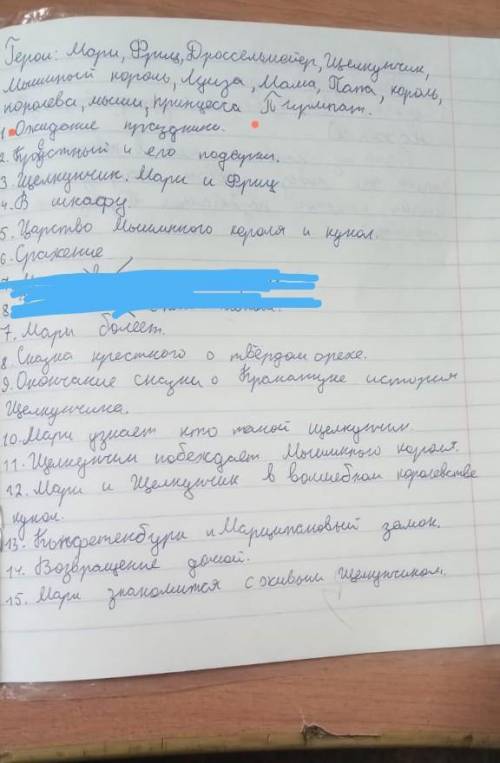 Герои: Мари, Фриц, Дроссельмейер, Щелкунчик,
Мышиный король, Луиза, Мама, Папа, король,
королева, мыши, принцесса Пирлипат.
1. Ожидание праздника.
2. Крёстный и его подарки.
3. Щелкунчик. Мари и Фриц
4. В шкафу
5. Царство Мышиного короля и кукол.
6. Сражение
8.
7. Мари болеет.
8. Сказка крестного о твёрдом орехе.
9. Окончание сказки о Кракатуке история
Щелкунчика.
10. Мари узнает кто такой щелкунчик.
11. Щелкунчик побеждает Мышиного короля.
12. Мари и Щелкунчик в волшебном королевстве
кукол.
13. Конфетенбург и Марципановый замок.
14. Возвращение домой.
15. Мари знакомится с живым Щелкунчиком.